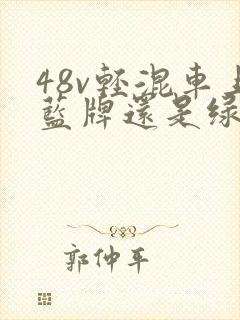 48v轻混車
藍牌還是绿
郭仲平